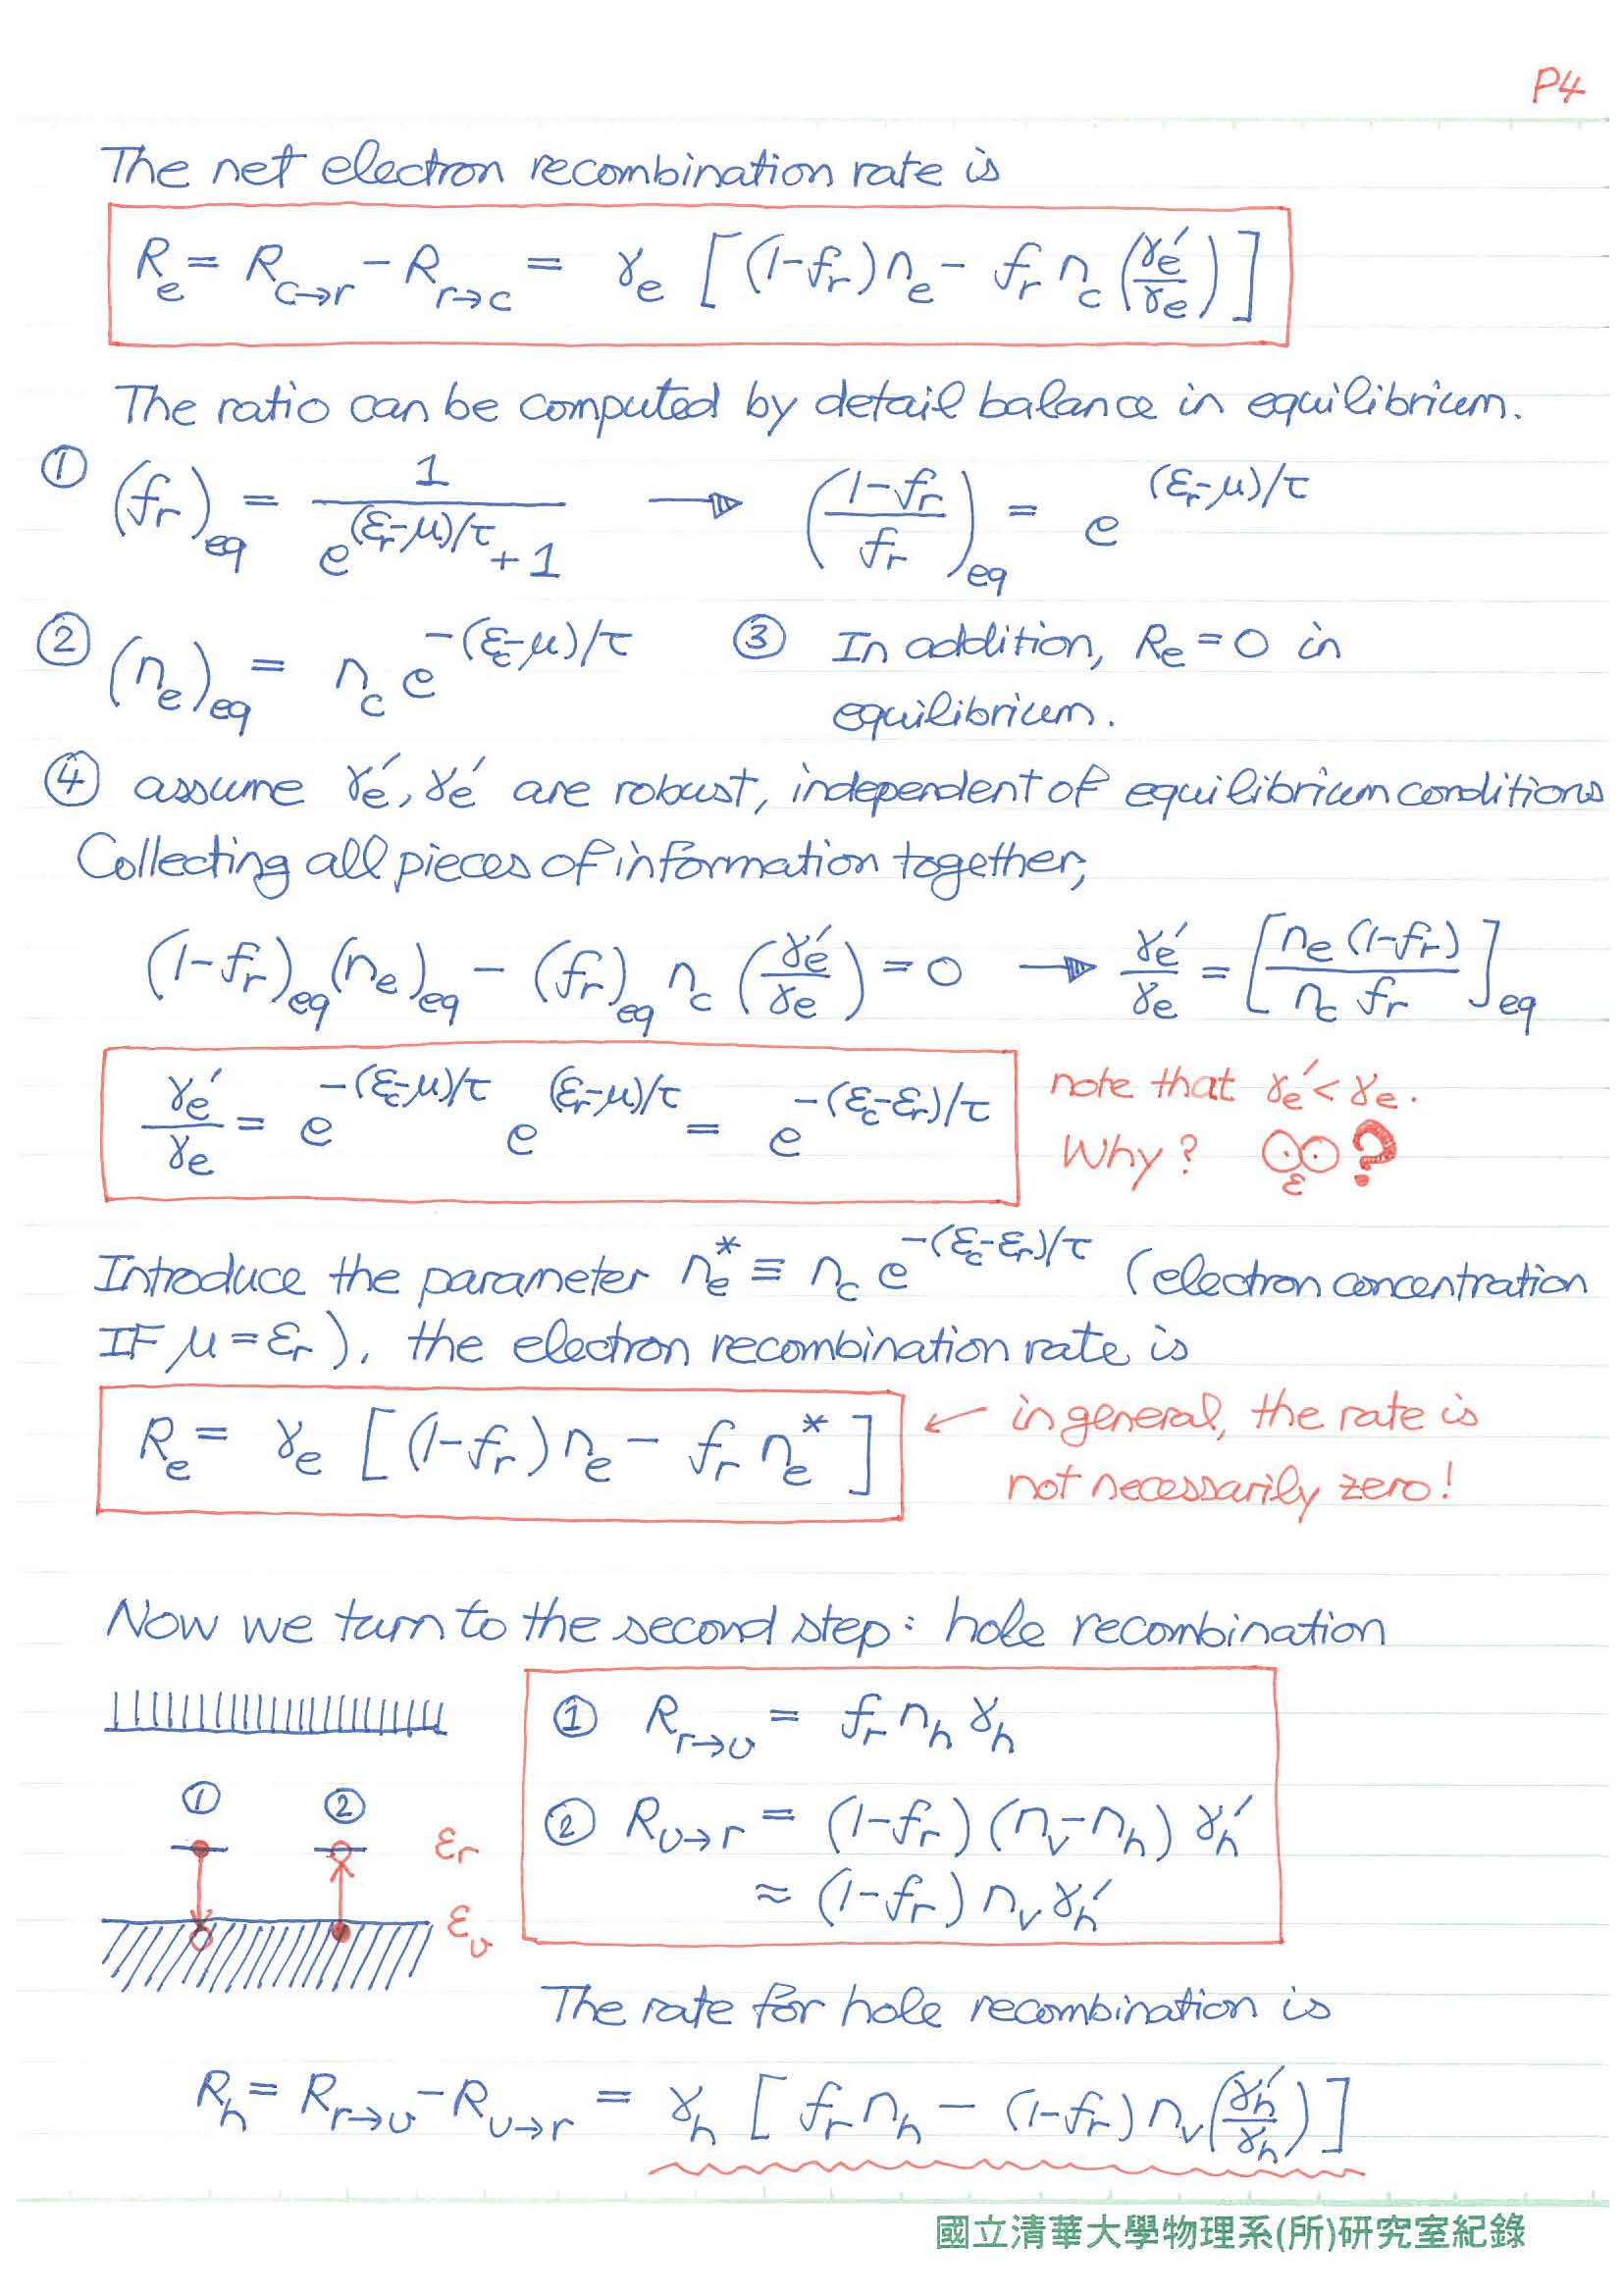 P4
The net electron recombination rate is
R_e = R_{c→r} − R_{r→c} = γ_e [(1−f_r) n_e − f_r n_c (γ_e′/γ_e)]
The ratio can be computed by detail balance in equilibrium.
① (f_r)_eq = 1/(e^{(ε_r−μ)/τ} + 1) → ((1−f_r)/f_r)_eq = e^{(ε_r−μ)/τ}
② (n_e)_eq = n_c e^{−(ε_c−μ)/τ} ③ In addition, R_e = 0 in
equilibrium.
④ assume γ_e′, γ_e′ are robust, independent of equilibrium conditions
Collecting all pieces of information together,
(1−f_r)_eq (n_e)_eq − (f_r)_eq n_c (γ_e′/γ_e) = 0 → γ_e′/γ_e = [n_e (1−f_r)/(n_c f_r)]_eq
γ_e′/γ_e = e^{−(ε_c−μ)/τ} e^{(ε_r−μ)/τ} = e^{−(ε_c−ε_r)/τ}
note that γ_e′ < γ_e.
Why? ?
Introduce the parameter n_e^* ≡ n_c e^{−(ε_c−ε_r)/τ} (electron concentration
IF μ = ε_r), the electron recombination rate is
R_e = γ_e [(1−f_r) n_e − f_r n_e^*]
← in general, the rate is
not necessarily zero!
Now we turn to the second step: hole recombination
① R_{r→v} = f_r n_h γ_h
② R_{v→r} = (1−f_r)(n_v−n_h) γ_h′
≈ (1−f_r) n_v γ_h′
① ②
ε_r
ε_v
The rate for hole recombination is
R_h = R_{r→v} − R_{v→r} = γ_h [f_r n_h − (1−f_r) n_v (γ_h′/γ_h)]
國立清華大學物理系(所)研究室紀錄